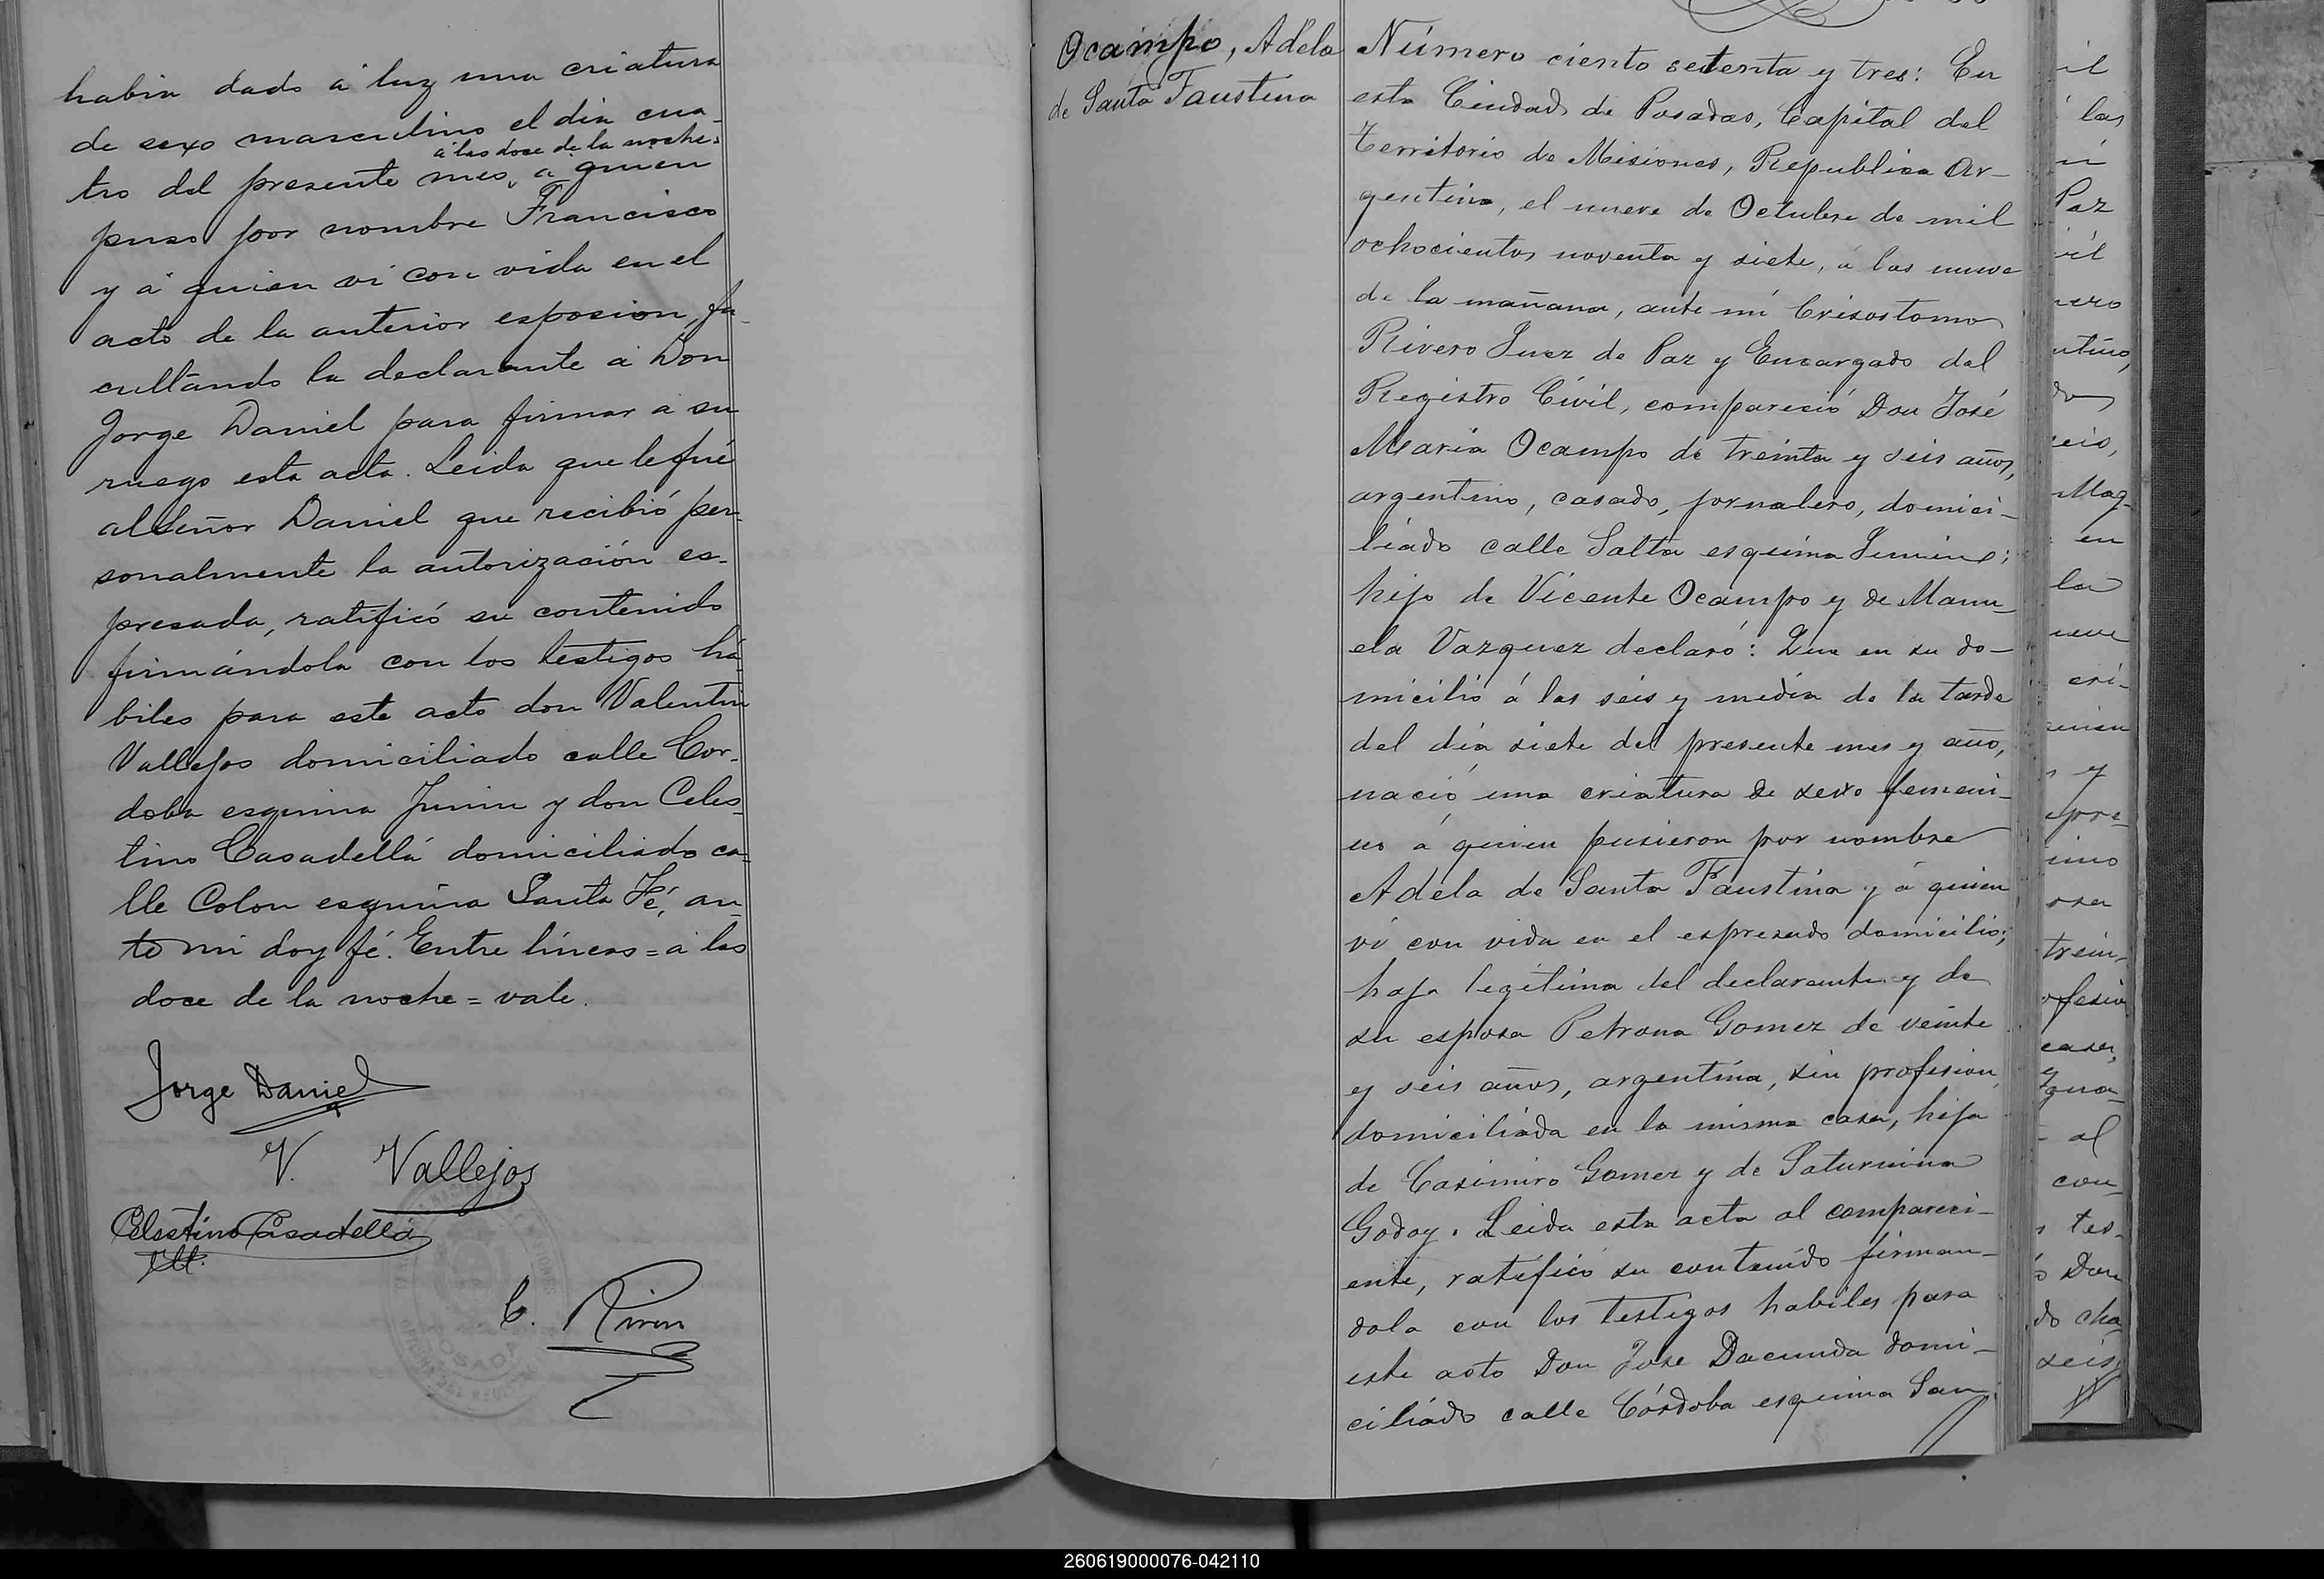 habia dado á luz una criatura
de sexo masculino el dia cua-
á las doce de la noche
tro del presente mes, á quien
puso por nombre Francisco
y á quien vi con vida en el
acto de la anterior esposion, fa-
cultando la declarante á Don
Jorge Daniel para firmar á su
ruego esta acta. Leida que le fué
al Señor Daniel que recibió per-
sonalmente la autorización es-
presada, ratificó su contenido
firmándola con los testigos há-
biles para este acto don Valentin
Vallejos domiciliado calle Cor-
doba esquina Junin y don Celes-
tino Casadellá domiciliado ca-
lle Colon esquina Santa Fé, an-
te mi doy fé. Entre lineas = á las
doce de la noche = vale.
Jorge Daniel
V. Vallejos
Celestino Casadellá
C. Rivero
Ocampo, Adela
de Santa Faustina
Número ciento setenta y tres: En
esta Ciudad de Posadas, Capital del
Territorio de Misiones, Republica Ar-
gentina, el nueve de Octubre de mil
ochocientos noventa y siete, á las nueve
de la mañana, ante mí Crisostomo
Rivero Juez de Paz y Encargado del
Registro Civil, compareció Don José
Maria Ocampo de treinta y seis años,
argentino, casado, jornalero, domici-
liado calle Salta esquina Junin;
hijo de Vicente Ocampo y de Manu-
ela Vazquez declaró: Que en su do-
micilio á las seis y media de la tarde
del día siete del presente mes y año,
nació una criatura de sexo femeni-
no á quien pusieron por nombre
Adela de Santa Faustina y á quien
ví con vida en el espresado domicilio;
haja legítima del declarante y de
su esposa Petrona Gomez de veinte
y seis años, argentina, sin profesion,
domiciliada en la misma casa, hija
de Casimiro Gomez y de Saturnina
Godoy. Leida esta acta al compareci-
ente, ratificó su contenido firman-
dola con los testigos habiles para
este acto Don Jose Dacunda domi-
ciliado calle Córdoba esquina San
il
las
Paz
vil
nero
ntino,
seis,
Mag-
en
la
cri-
s y
trein-
casa,
al
con-
tes-
Don
do cha-
seis
260619000076-042110